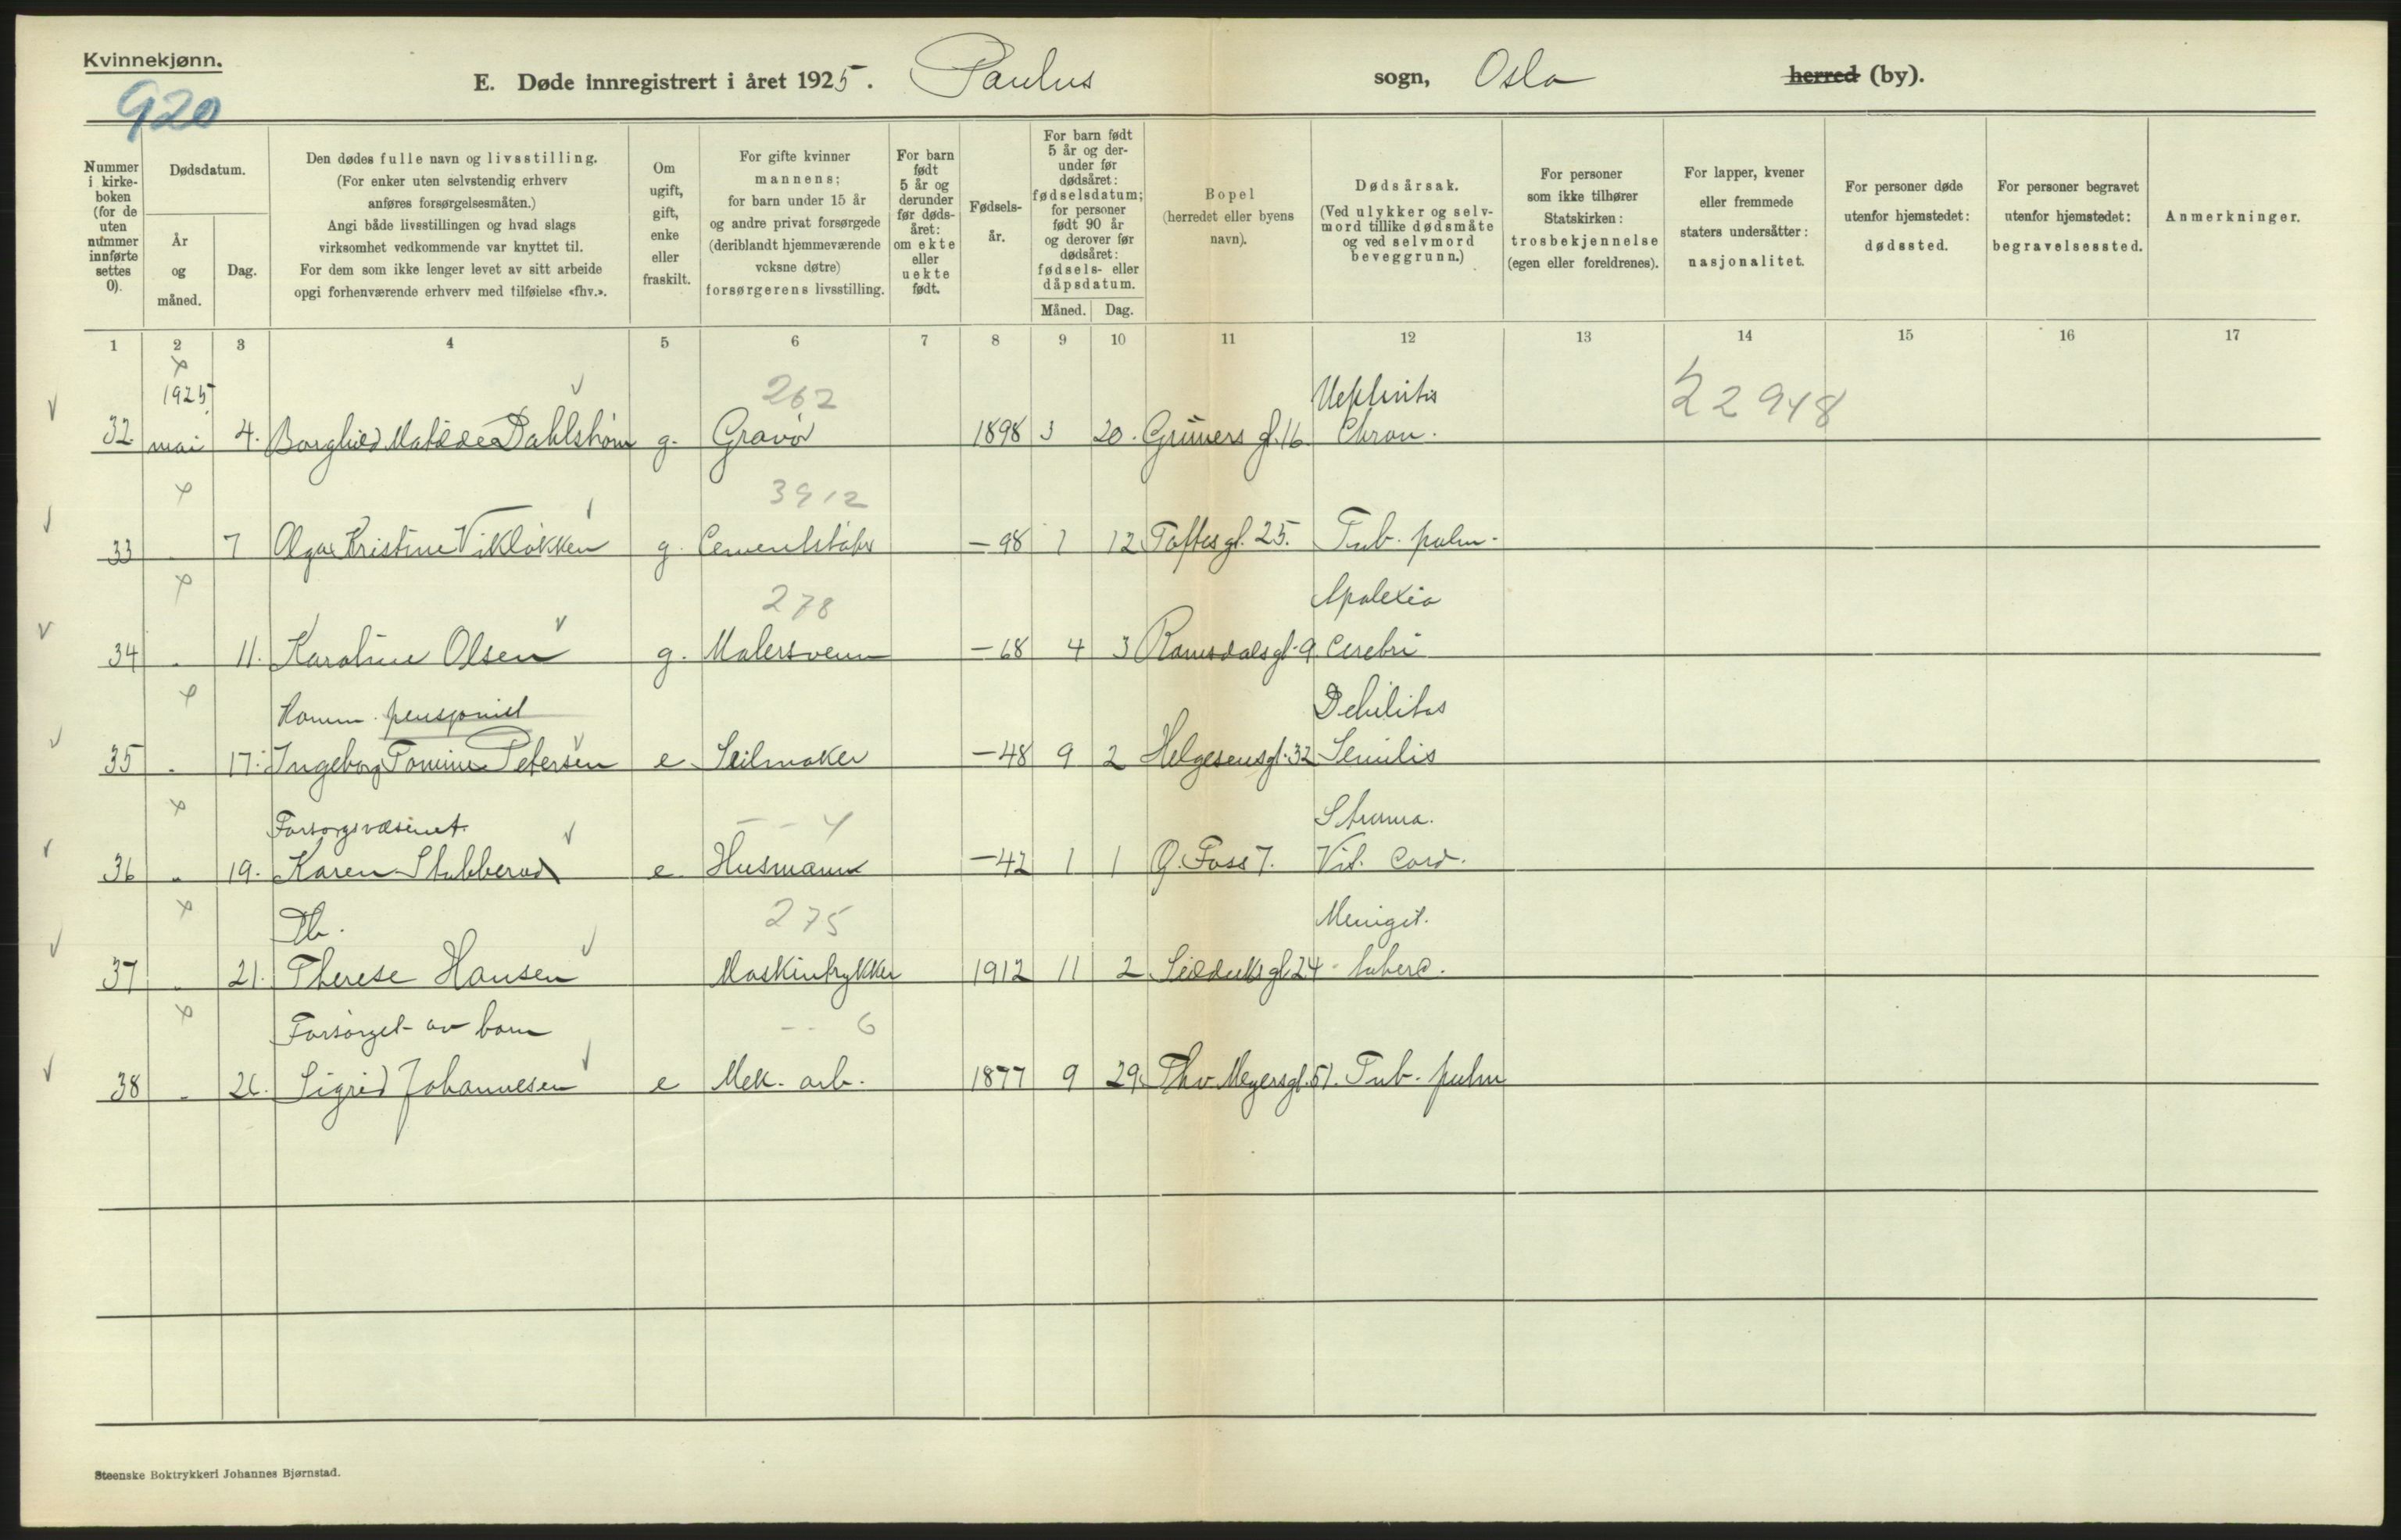 Kvinnekjønn.
920
E. Døde innregistrert i året 1925. Paulus sogn, Oslo herred (by).
Nummer i kirke-boken (for de uten nummer innførte settes 0).
Dødsdatum.
År og måned.
Dag.
Den dødes fulle navn og livsstilling.
(For enker uten selvstendig erhverv
anføres forsørgelsesmåten.)
Angi både livsstillingen og hvad slags
virksomhet vedkommende var knyttet til.
For dem som ikke lenger levet av sitt arbeide
opgi forhenværende erhverv med tilføielse «fhv.».
Om ugift, gift, enke eller fraskilt.
For gifte kvinner
mannens;
for barn under 15 år
og andre privat forsørgede
(deriblandt hjemmeværende
voksne døtre)
forsørgerens livsstilling.
For barn født 5 år og derunder før døds-året: om ekte eller uekte født.
Fødsels-år.
For barn født 5 år og der-under før dødsåret: fødselsdatum; for personer født 90 år og derover før dødsåret: fødsels- eller dåpsdatum.
Måned. Dag.
Bopel
(herredet eller byens
navn).
Dødsårsak.
(Ved ulykker og selv-
mord tillike dødsmåte
og ved selvmord
beveggrunn.)
For personer
som ikke tilhører
Statskirken:
trosbekjennelse
(egen eller foreldrenes).
For lapper, kvener
eller fremmede
staters undersåtter:
nasjonalitet.
For personer døde
utenfor hjemstedet:
dødssted.
For personer begravet
utenfor hjemstedet:
begravelsessted.
Anmerkninger.
1 2 3 4 5 6 7 8 9 10 11 12 13 14 15 16 17
1925 262 Nephritis 22948
32 mai 4. Borghild Matilde Dahlstrøm g. Gravør 1898 3 20. Grüners gt. 16. Chron.
3912
33 . 7 Olga Kristine Vikløkken g. Cementstøper -98 1 12 Toftes gt. 25. Tub. pulm.
278 Apolexia
34 . 11. Karoline Olsen g. Malersvenn -68 4 3 Romsdalsgt. 9. Cerebri
Komm. pensjonist Debilitas
35 . 17. Ingeborg Petersen e Seilmaker -48 9 2 Helgesensgt. 32 Senilis
Forsorgsvæsenet. - - 4 Struma.
36 . 19. Karen Stubberud e Husmann -42 1 1 Ø. Foss 7. Vit. Cord.
Db. 275 Meningit.
37 . 21. Therese Hansen Maskintrykker 1912 11 2 Seilduksgt. 24 - tuberc.
Forsørget av barn - - 6
38 . 26. Sigrid Johannesen e Mek. arb. 1877 9 29. Thv. Meyersgt. 51. Tub. pulm
Steenske Boktrykkeri Johannes Bjørnstad.